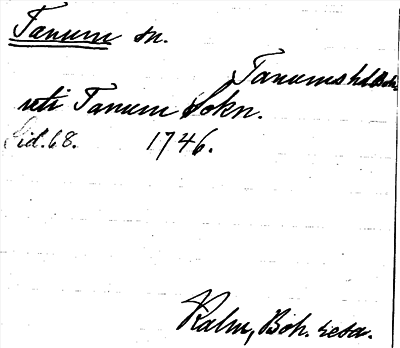 Tanum sn.
Tanums hd. Boh.
uti Tanum Sokn.
Sid. 68. 1746.
Kalm, Boh. resa.